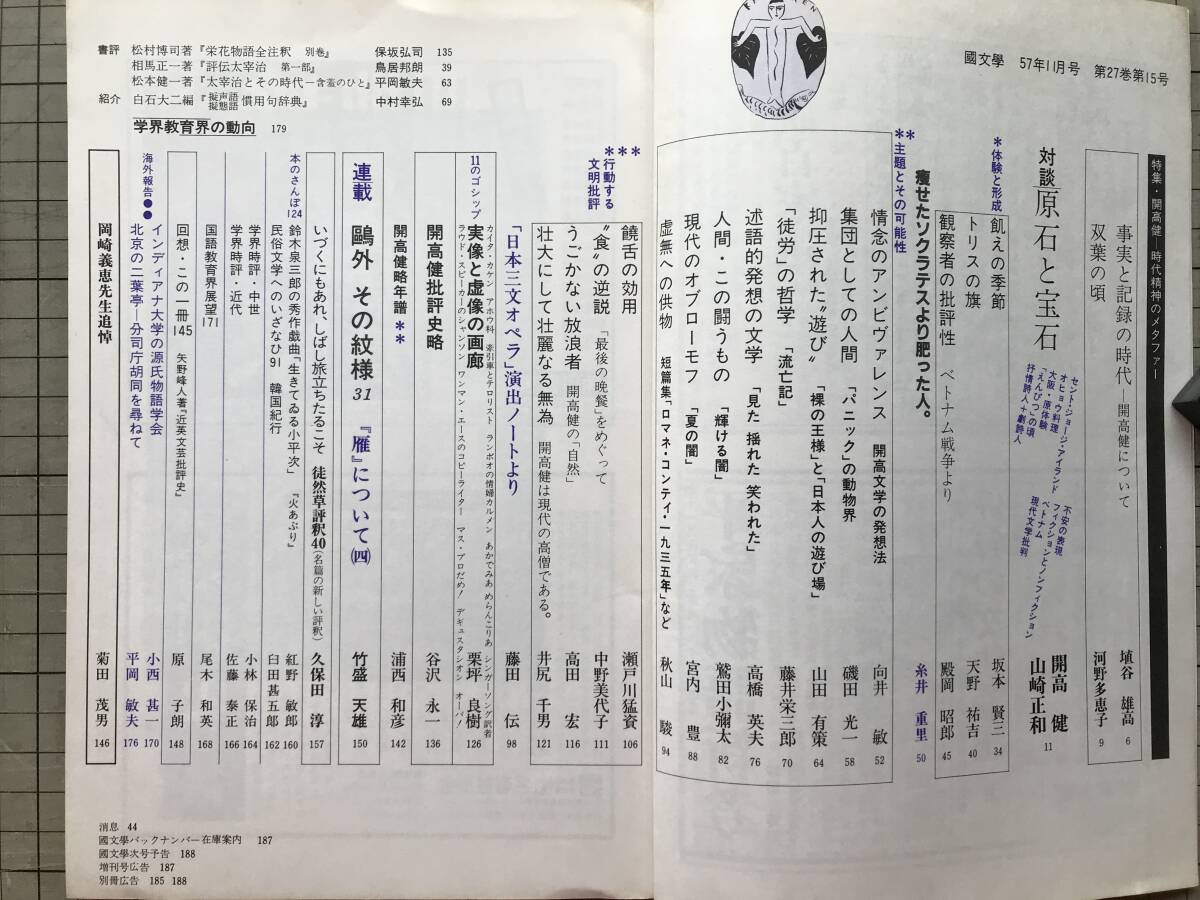 國文學 57年11月号 第27巻第15号
特集・開高健―時代精神のメタファー
事実と記録の時代―開高健について 埴谷 雄高 6
双葉の頃 河野多恵子 9
対談 原石と宝石 開高 健 山崎正和 11
セント・ジョージ・アイランド
オヒョウ料理
大阪・原体験
「えんぴつ」の頃
抒情詩人+劇詩人
不安の表現
フィクションとノンフィクション
ベトナム
現代文学批判
*体験と形成
飢えの季節 坂本 賢三 34
トリスの旗 天野 祐吉 40
観察者の批評性 ベトナム戦争より 殿岡 昭郎 45
痩せたソクラテスより肥った人。 糸井 重里 50
**主題とその可能性
情念のアンビヴァレンス 開高文学の発想法 向井 敏 52
集団としての人間 「パニック」の動物界 磯田 光一 58
抑圧された〝遊び〟 「裸の王様」と「日本人の遊び場」 山田 有策 64
「徒労」の哲学 「流亡記」 藤井栄三郎 70
述語的発想の文学 「見た 揺れた 笑われた」 高橋 英夫 76
人間・この闘うもの 「輝ける闇」 鷲田小彌太 82
現代のオブローモフ 「夏の闇」 宮内 豊 88
虚無への供物 短篇集「ロマネ・コンティ・一九三五年」など 秋山 駿 94
***行動する文明批評
饒舌の効用 瀬戸川猛資 106
〝食〟の逆説 「最後の晩餐」をめぐって 中野美代子 111
うごかない放浪者 開高健の「自然」 高田 宏 116
壮大にして壮麗なる無為 開高健は現代の高僧である。 井尻 千男 121
「日本三文オペラ」演出ノートより 藤田 伝 98
11のゴシップ 実像と虚像の画廊 栗坪 良樹 126
カイタ・カケン アホウ科 牽引車とテロリスト ランボオの情婦カルメン あかでみあ めらんこりあ シンガーソング訳者
ラウド・スピーカーのシャンソン ワンマン・エースのコピーライター マス・プロだめ! デギュスタシオン オーパ!
開高健批評史略 谷沢 永一 136
開高健略年譜** 浦西 和彦 142
連載 鷗外 その紋様 31 『雁』について㈣ 竹盛 天雄 150
いづくにもあれ、しばし旅立ちたるこそ 徒然草評釈40(名篇の新しい評釈) 久保田 淳 157
本のさんぽ124 鈴木泉三郎の秀作戯曲「生きてゐる小平次」 『火あぶり』 紅野 敏郎 160
民俗文学へのいざなひ91 韓国紀行 臼田甚五郎 162
学界時評・中世 小林 保治 164
学界時評・近代 佐藤 泰正 166
国語教育界展望171 尾木 和英 168
回想・この一冊145 矢野峰人著『近英文芸批評史』 原 子朗 148
海外報告●●
インディアナ大学の源氏物語学会 小西 甚一 170
北京の二葉亭―分司庁胡同を尋ねて 平岡 敏夫 176
岡崎義恵先生追悼 菊田 茂男 146
書評 松村博司著『栄花物語全注釈 別巻』 保坂弘司 135
相馬正一著『評伝太宰治 第一部』 鳥居邦朗 39
松本健一著『太宰治とその時代―含羞のひと』平岡敏夫 63
紹介 白石大二編『擬声語擬態語慣用句辞典』 中村幸弘 69
学界教育界の動向 179
消息 44
國文學バックナンバー在庫案内 187
國文學次号予告 188
増刊号広告 187
別冊広告 185 188